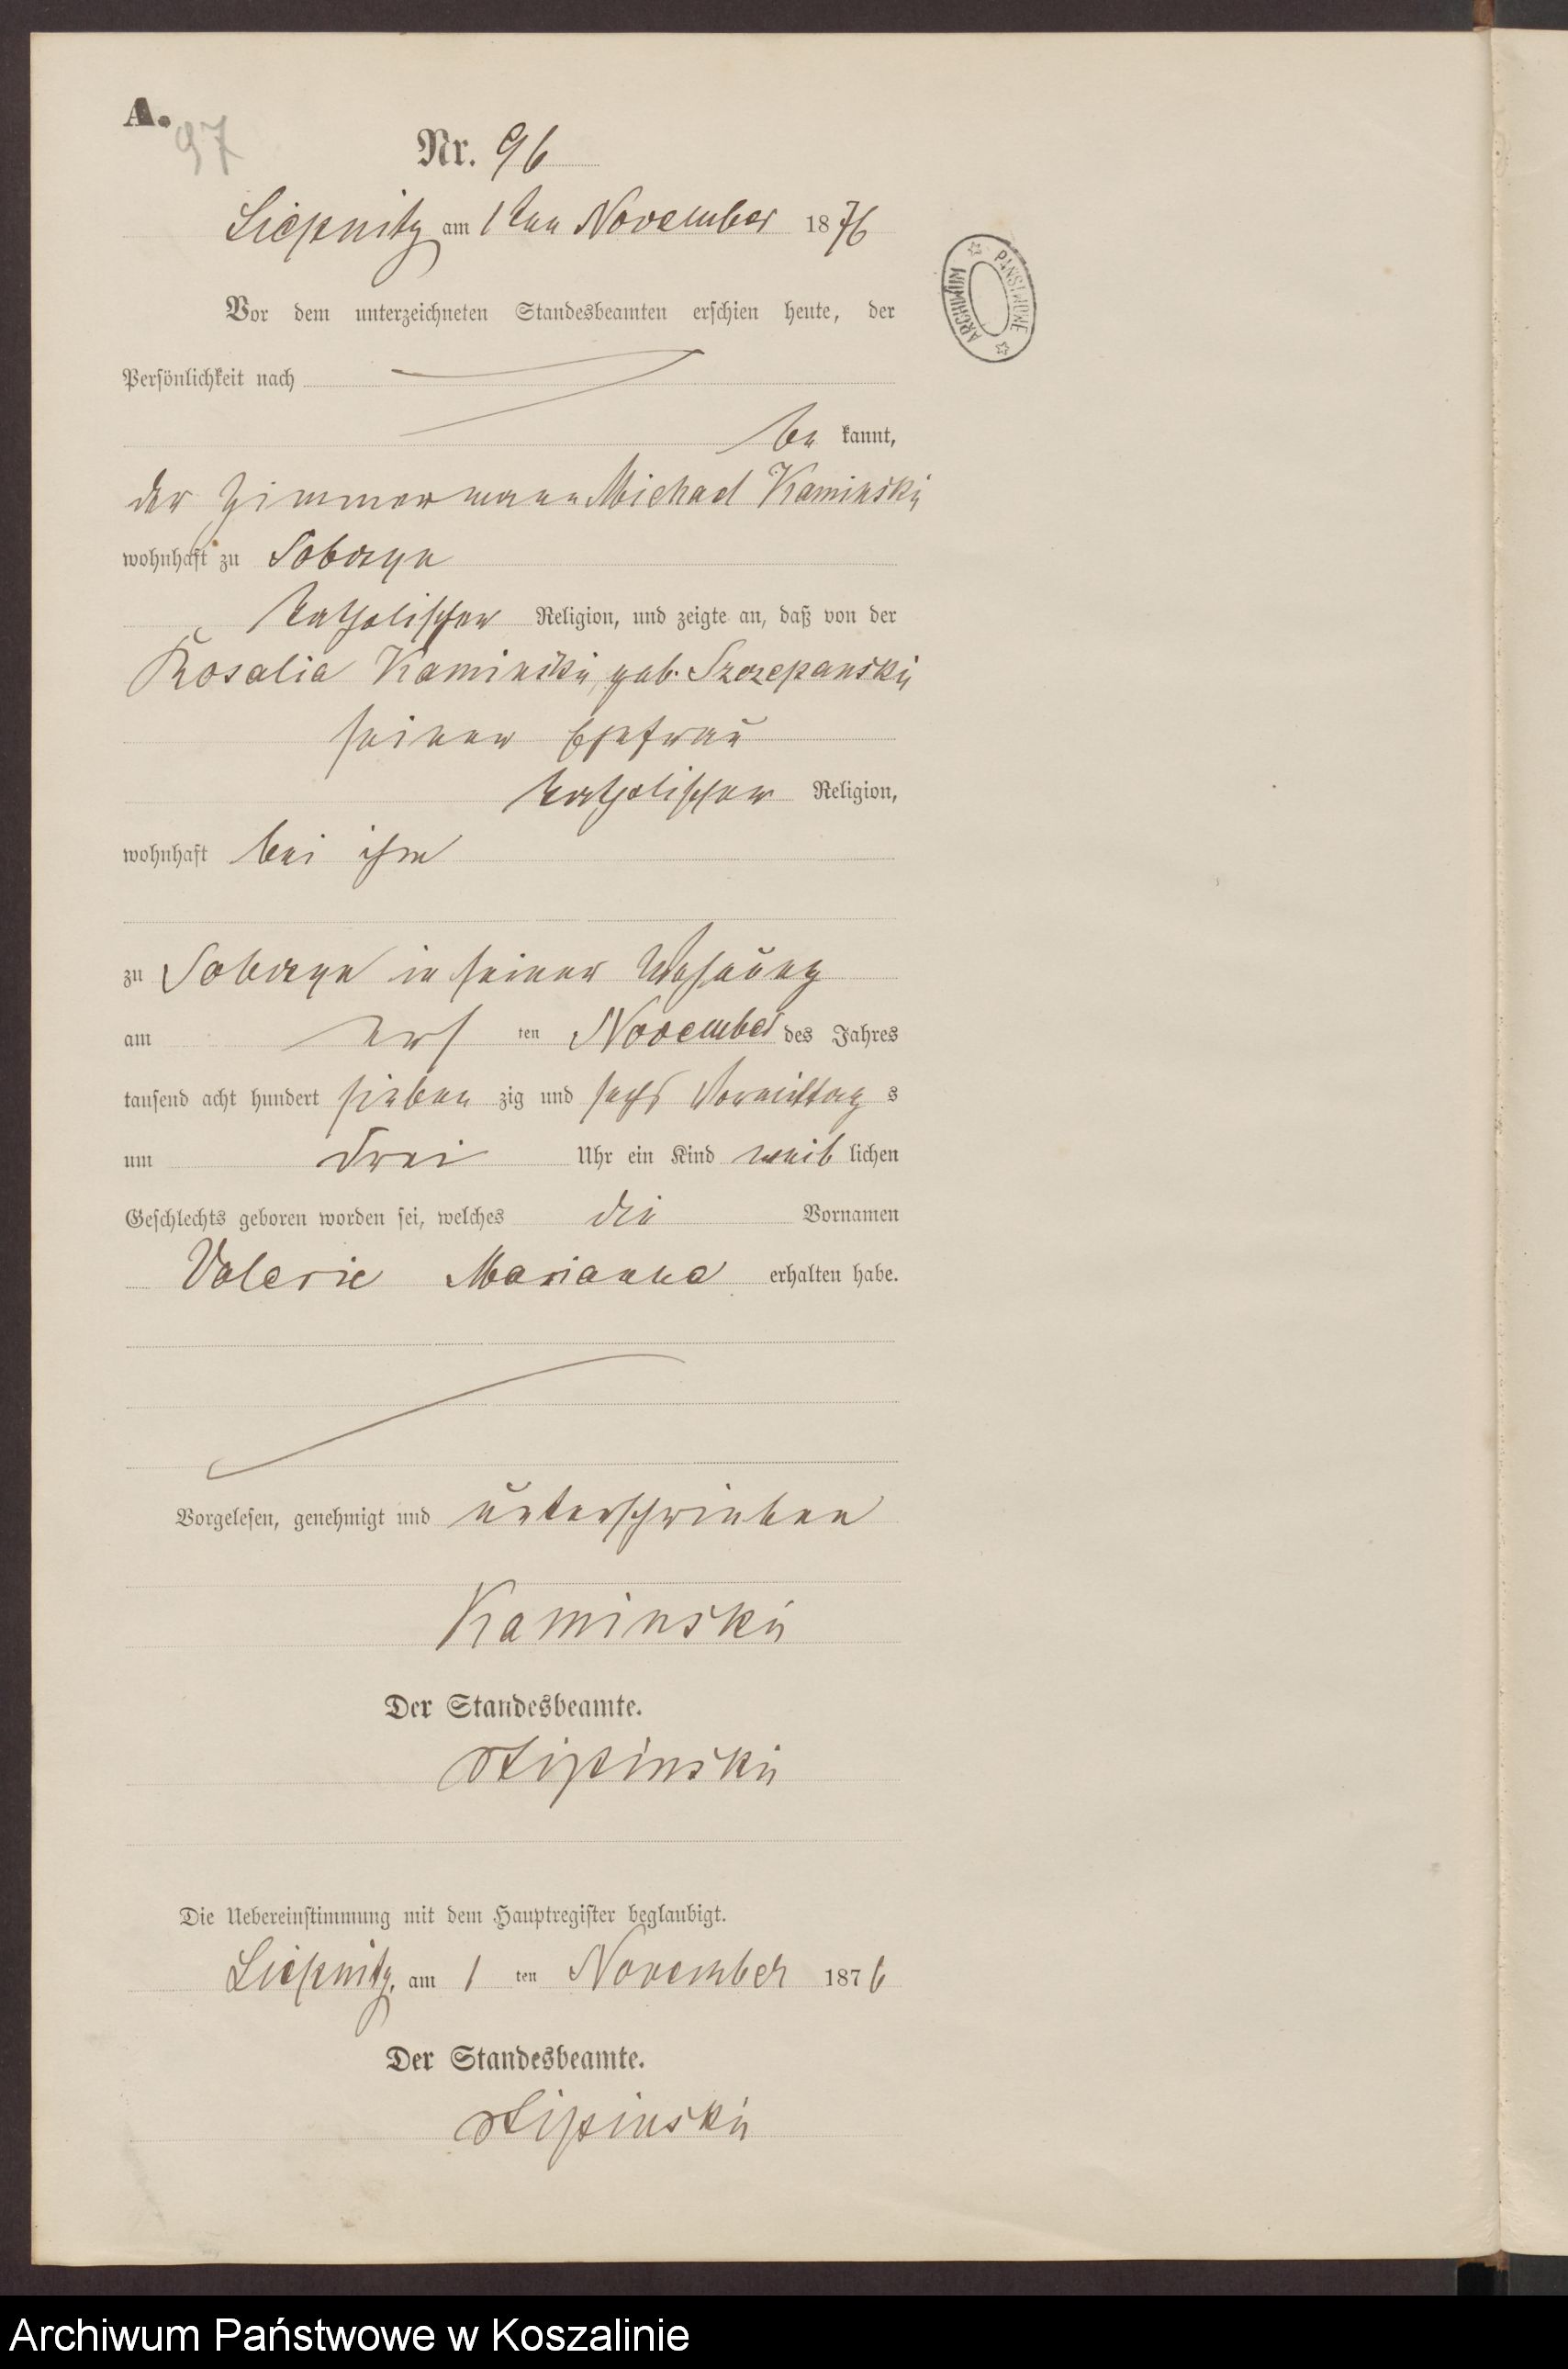 A.
97
Nr. 96
Liepnitz am 1ten November 1876
Vor dem unterzeichneten Standesbeamten erschien heute, der
Persönlichkeit nach
be kannt,
der Zimmermann Michael Kaminski
wohnhaft zu
katholischer Religion, und zeigte an, daß von der
Rosalia Kaminski, geb. Szczepanski
seiner Ehefrau
katholischer Religion,
wohnhaft bei ihm
zu in seiner Wohnung
am ers ten November des Jahres
tausend acht hundert sieben zig und sechs Vormittag s
um drei Uhr ein Kind weib lichen
Geschlechts geboren worden sei, welches die Vornamen
Valerie Marianna erhalten habe.
Vorgelesen, genehmigt und unterschrieben
Kaminski
Der Standesbeamte.
Die Uebereinstimmung mit dem Hauptregister beglaubigt.
Liepnitz, am 1 ten November 1876
Der Standesbeamte.
ARCHIWUM PAŃSTWOWE
Archiwum Państwowe w Koszalinie